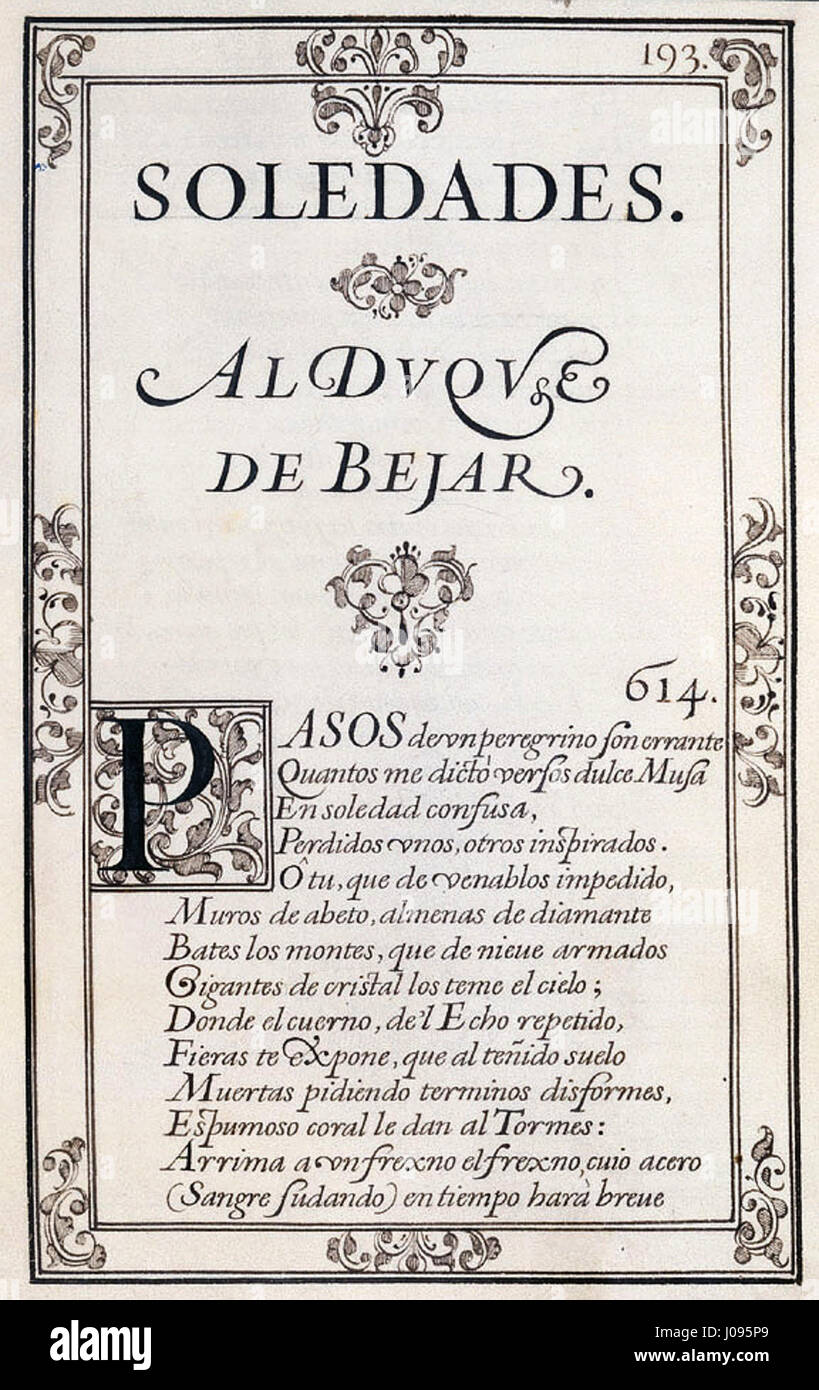 193.
SOLEDADES.
AL DVQVE
DE BEJAR.
614.
PASOS de vn peregrino son errante
Quantos me dictò versos dulce Musa
En soledad confusa,
Perdidos vnos, otros inspirados.
Ô tu, que de venablos impedido,
Muros de abeto, almenas de diamante
Bates los montes, que de nieue armados
Gigantes de cristal los teme el cielo;
Donde el cuerno, de'l Echo repetido,
Fieras te expone, que al teñido suelo
Muertas pidiendo terminos disformes,
Espumoso coral le dan al Tormes:
Arrima a vn frexno el frexno, cuio acero
(Sangre sudando) en tiempo harà breue
a alamy
alamy stock photo
J095P9
www.alamy.com